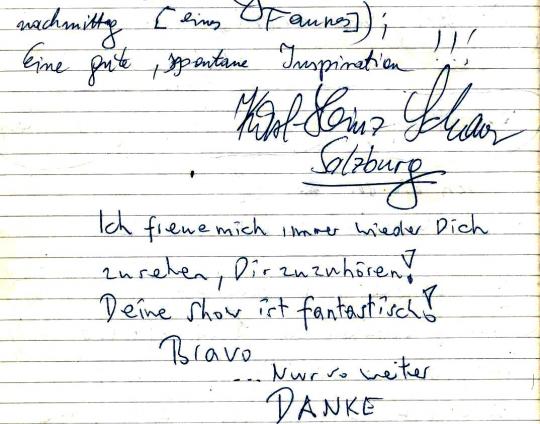 nachmittag [eines Faunes]);
Eine gute, spontane Inspiration !!!
Karl-Heinz
Salzburg
Ich freue mich immer wieder Dich
zu sehen, Dir zuzuhören!
Deine Show ist fantastisch!
Bravo
... Nur so weiter
DANKE